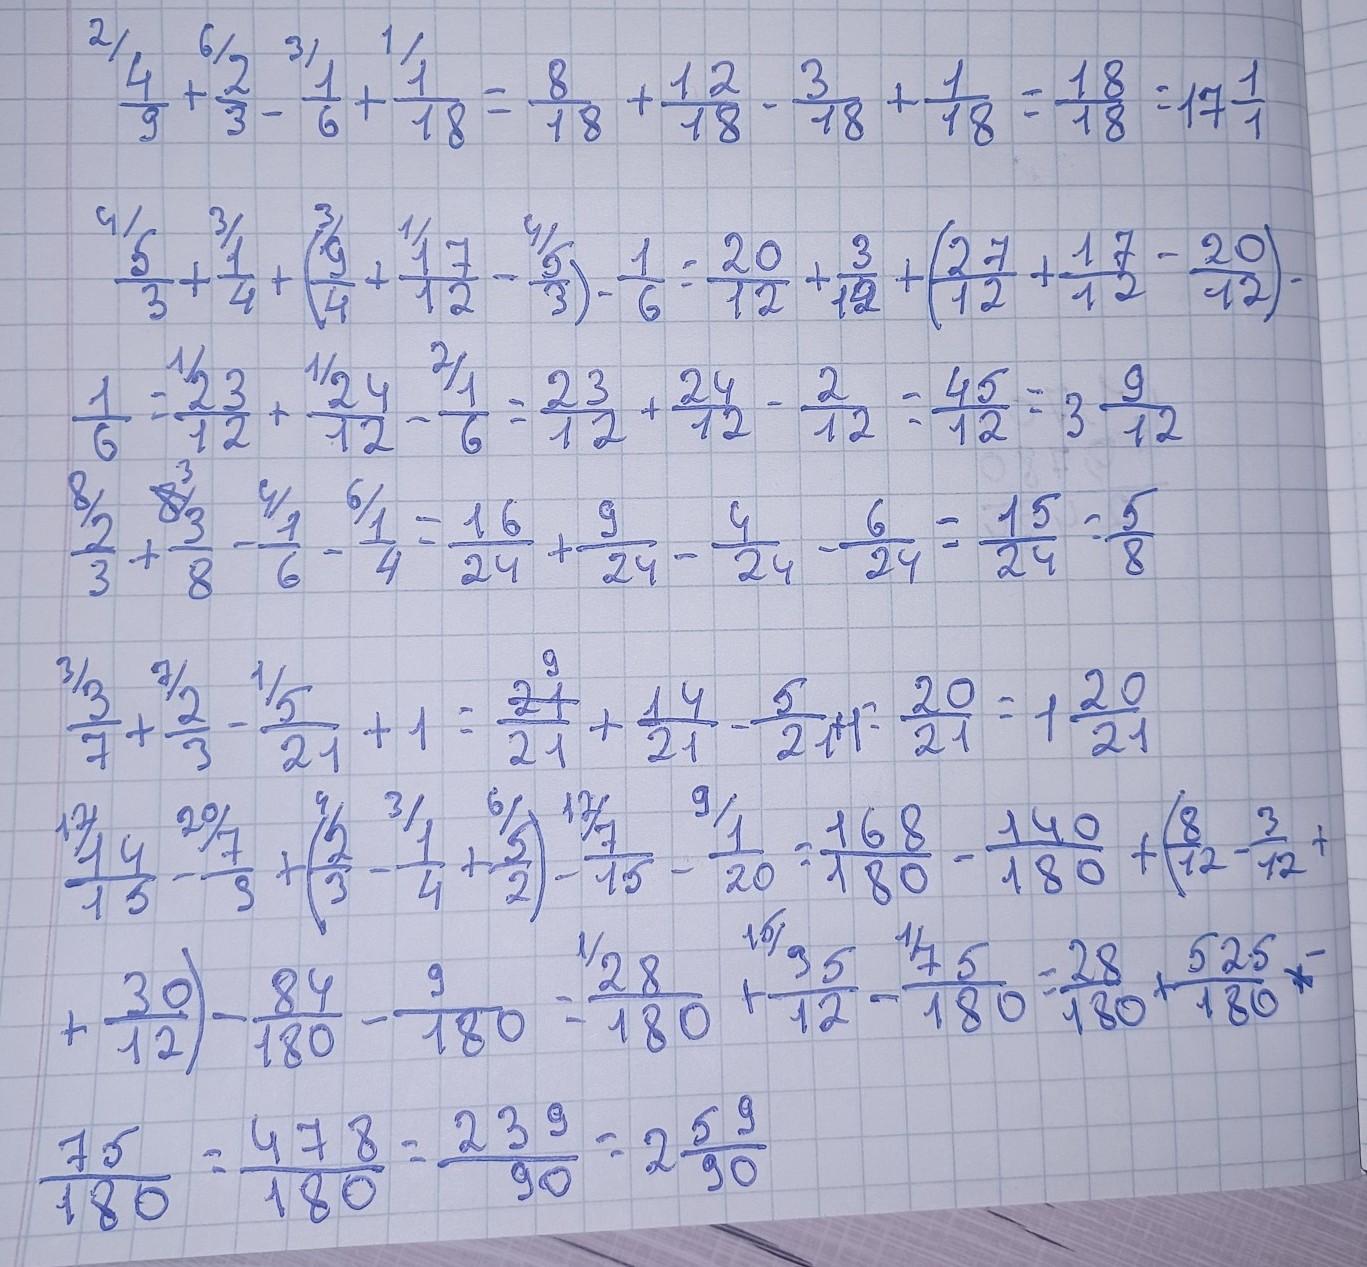 2/ 6/ 3/ 1/
4/9 + 2/3 - 1/6 + 1/18 = 8/18 + 12/18 - 3/18 + 1/18 = 18/18 = 17 1/1
4/ 3/ 3/ 1/ 4/
5/3 + 1/4 + (9/4 + 17/12 - 5/3) - 1/6 = 20/12 + 3/12 + (27/12 + 17/12 - 20/12) -
1/ 1/ 2/
1/6 = 23/12 + 24/12 - 1/6 = 23/12 + 24/12 - 2/12 = 45/12 = 3 9/12
8/ 3/ 4/ 6/
2/3 + 3/8 - 1/6 - 1/4 = 16/24 + 9/24 - 4/24 - 6/24 = 15/24 = 5/8
3/ 7/ 1/ 9
3/7 + 2/3 - 5/21 + 1 = 21/21 + 14/21 - 5/21 + 1 = 20/21 = 1 20/21
12/ 20/ 4/ 3/ 6/ 12/ 9/
14/15 - 7/9 + (2/3 - 1/4 + 5/2) - 7/15 - 1/20 = 168/180 - 140/180 + (8/12 - 3/12 +
1/ 15/ 1/
+ 30/12) - 84/180 - 9/180 = 28/180 + 35/12 - 75/180 = 28/180 + 525/180 -
75/180 = 478/180 = 239/90 = 2 59/90